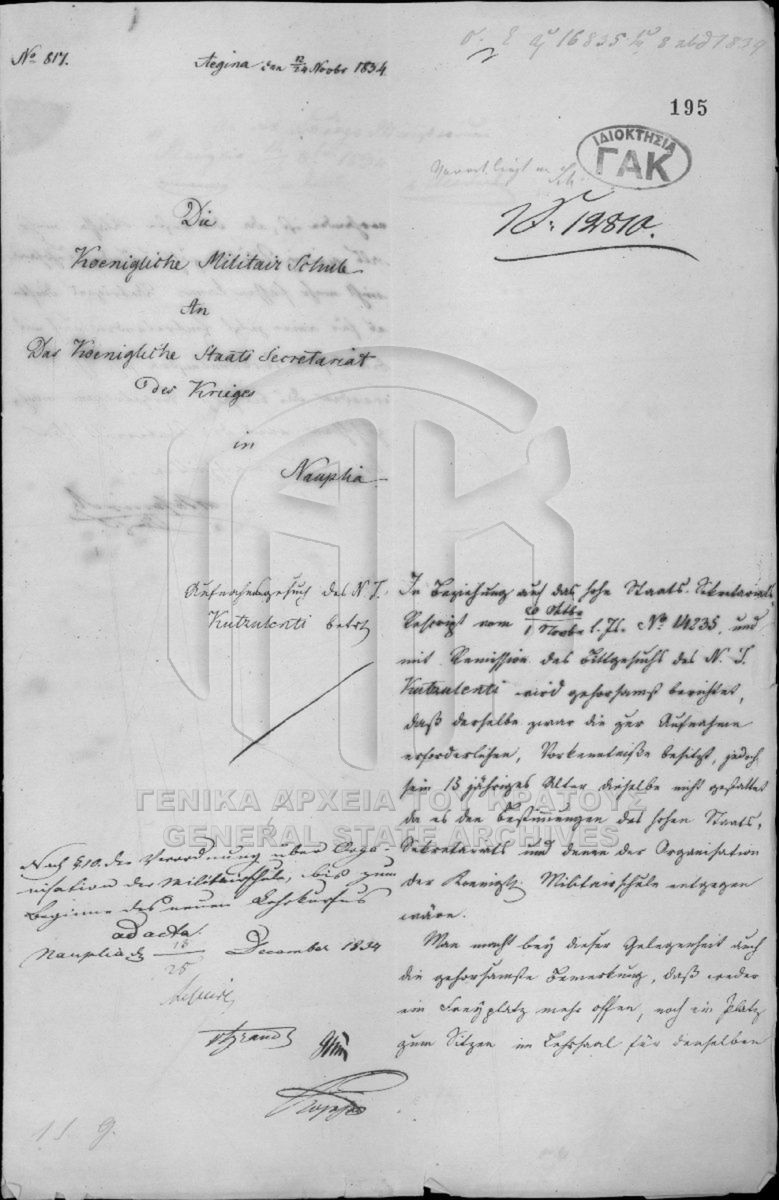 No 817.
Aegina den 12/24 Novbr 1834
195
ΙΔΙΟΚΤΗΣΙΑ
ΓΑΚ
N. 12810.
Die
Koenigliche Militair Schule
An
Das Koenigliche Staats Secretariat
des Krieges
in
Nauplia
Aufnahmsgesuch des N. T.
Kutzulenti betr
In Beziehung auf das hohe Staats-Sekretariats
Rescript vom 20 Octbr / 1 Novbr l. Js. No 14235, und
mit Remission des Bittgesuchs des N. T.
Kutzulenti wird gehorsamst berichtet,
daß derselbe zwar die zur Aufnahme
erforderlichen, Vorkenntniße besitzt, jedoch
sein 13 jähriges Alter dieselbe nicht gestattet
da es den Bestimungen des hohen Staats-
Sekretariats und denen der Organisation
der Koenigl. Militairschule entgegen
wäre.
Man macht bey dieser Gelegenheit auch
die gehorsamste Bemerkung, daß weder
ein Freyplatz mehr offen, noch ein Platz
zum Sitzen im Lehrsaal für denselben
ΓΕΝΙΚΑ ΑΡΧΕΙΑ ΤΟΥ ΚΡΑΤΟΥΣ
GENERAL STATE ARCHIVES
Nach § 10. der Verordnung über Orga-
nisation der Militairschule, bis zum
Beginne des neuen Lehrkursus
ad acta.
Nauplia d 13/25 December 1834